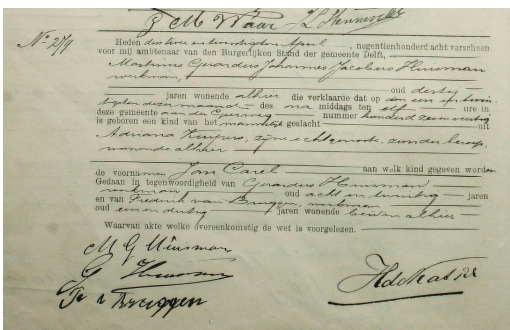 No 279
Heden den twee en twintigsten April, negentienhonderd acht verscheen
voor mij ambtenaar van den Burgerlijken Stand der gemeente Delft,
Martinus Gerardus Johannes Jacobus Huisman
werkman,
oud dertig
jaren wonende alhier die verklaarde dat op den een en twin
tigsten dezer maand des na middags ten elf ure in
deze gemeente aan de nummer honderd zes en veertig
is geboren een kind van het mannelijk geslacht uit
Adriana Kuipers, zijne echtgenoote, zonder beroep,
wonende alhier
aan welk kind gegeven worden
de voornamen Jan Carel
Gedaan in tegenwoordigheid van Gerardus Huisman
werkman oud acht en twintig jaren
en van Frederik van Bruggen, werkman
oud een en dertig jaren wonende beiden alhier
Waarvan akte welke overeenkomstig de wet is voorgelezen.
M G Huisman
G Huisman
F v Bruggen